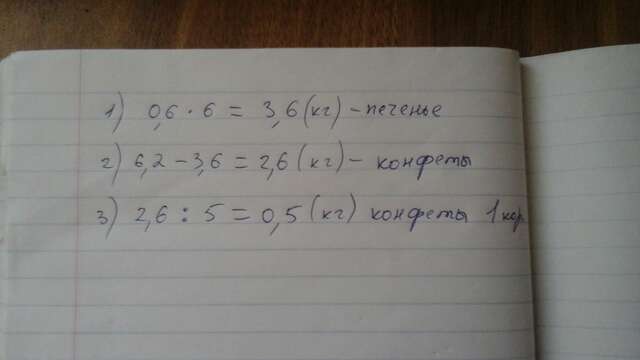 1) 0,6 · 6 = 3,6 (кг) – печенье
2) 6,2 – 3,6 = 2,6 (кг) – конфеты
3) 2,6 : 5 = 0,5 (кг) конфеты 1 кор